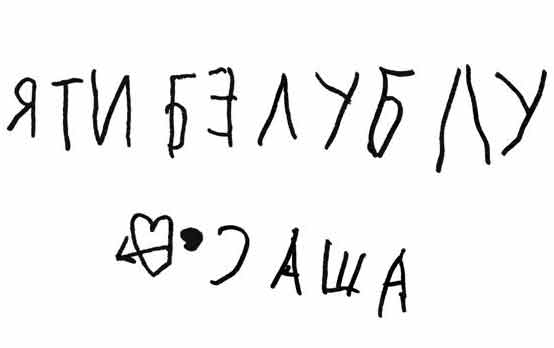 ЯТИБЕЛУБЛУ
САША